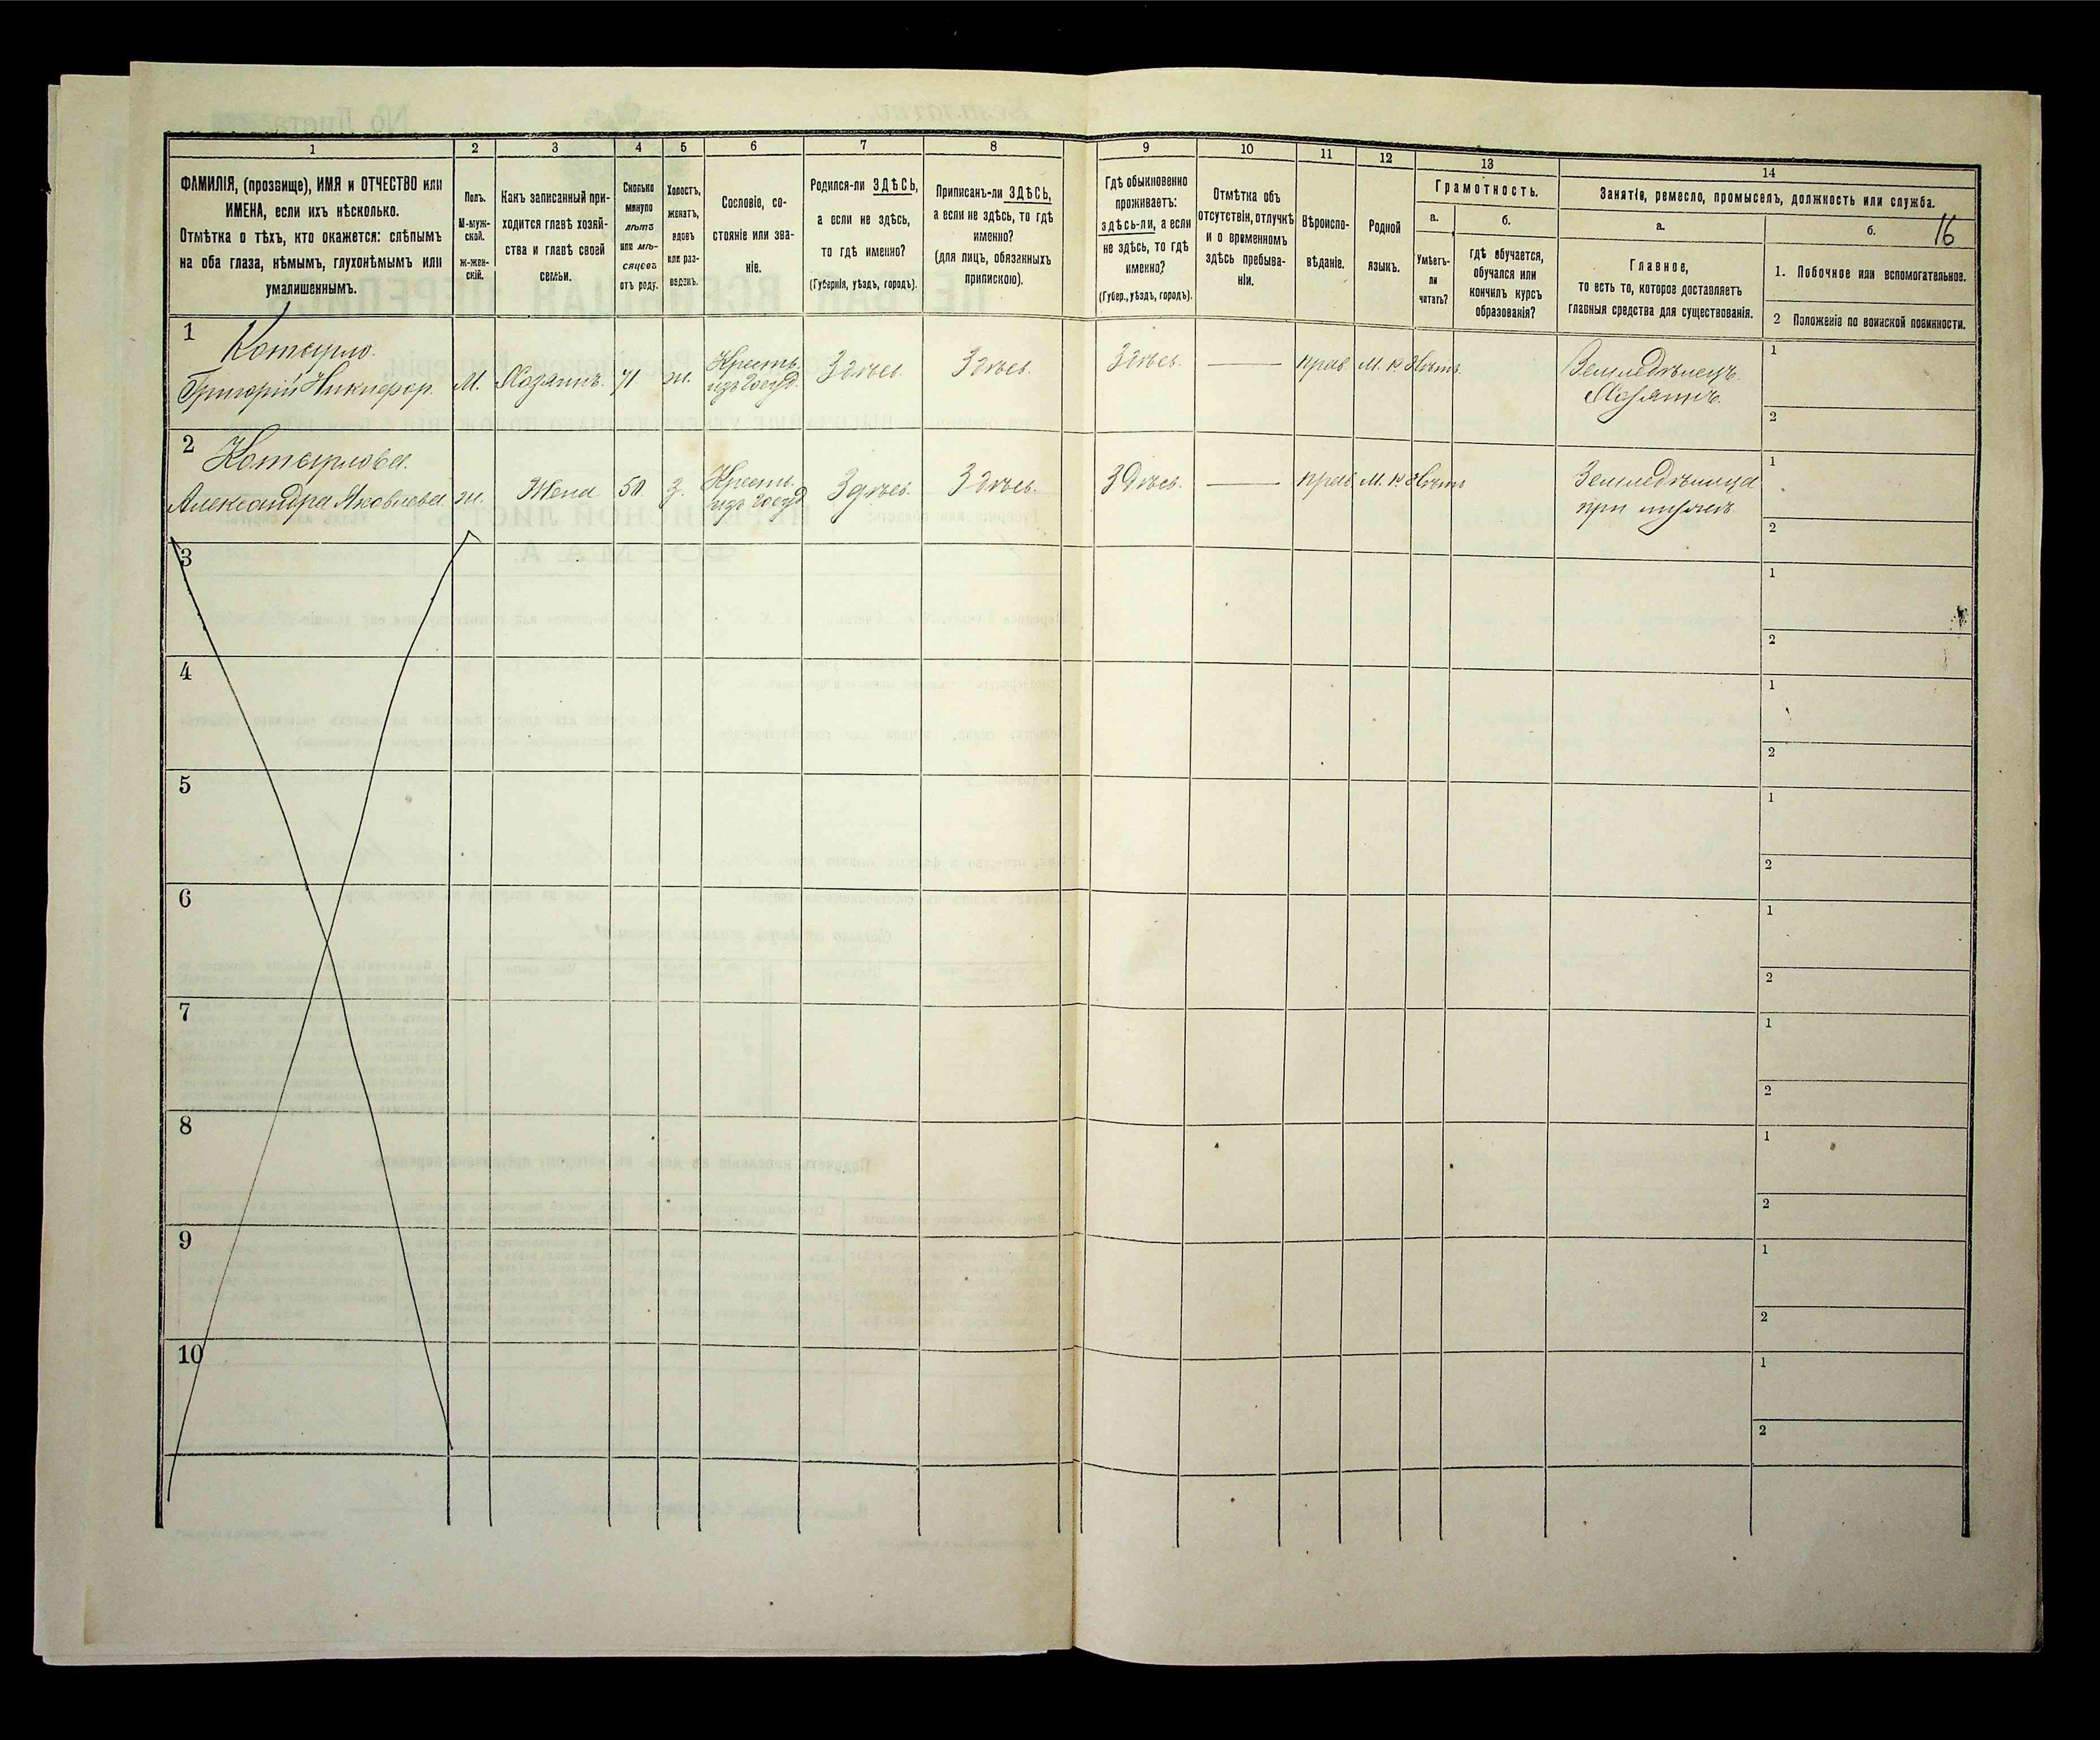 1 2 3 4 5 6 7 8 9 10 11 12 13 14
ФАМИЛІЯ, (прозвище), ИМЯ и ОТЧЕСТВО или
ИМЕНА, если ихъ нѣсколько.
Отмѣтка о тѣхъ, кто окажется: слѣпымъ
на оба глаза, нѣмымъ, глухонѣмымъ или
умалишеннымъ.
Полъ.
М-муж-
ской.
ж-жен-
скій.
Какъ записанный при-
ходится главѣ хозяй-
ства и главѣ своей
семьи.
Сколько
минуло
лѣтъ
или мѣ-
сяцевъ
отъ роду.
Холостъ,
женатъ,
вдовъ
или раз-
веденъ.
Сословіе, со-
стояніе или зва-
ніе.
Родился-ли ЗДѢСЬ,
а если не здѣсь,
то гдѣ именно?
(Губернія, уѣздъ, городъ).
Приписанъ-ли ЗДѢСЬ,
а если не здѣсь, то гдѣ
именно?
(для лицъ, обязанныхъ
припискою).
Гдѣ обыкновенно
проживаетъ:
здѣсь-ли, а если
не здѣсь, то гдѣ
именно?
(Губер., уѣздъ, городъ).
Отмѣтка объ
отсутствіи, отлучкѣ
и о временномъ
здѣсь пребыва-
ніи.
Вѣроиспо-
вѣданіе.
Родной
языкъ.
Грамотность.
а.
Умѣетъ-
ли
читать?
б.
гдѣ обучается,
обучался или
кончилъ курсъ
образованія?
Занятіе, ремесло, промыселъ, должность или служба.
а.
Главное,
то есть то, которое доставляетъ
главныя средства для существованія.
б.
16
1. Побочное или вспомогательное.
2 Положеніе по воинской повинности.
1
Котырло.
Григорій Никифор.
М. Хозяинъ. 71 ж.
Крестъ.
изъ госуд.
Здѣсь Здѣсь. Здѣсь. — прав. М. р. Нѣтъ.
Земледѣлецъ.
Хозяинъ.
1
2
2
Котырлова.
Александра Яковлева. ж. Жена 50 з.
Крестъ.
изъ госуд
Здѣсь. Здѣсь. Здѣсь. — прав М. р. Нѣтъ
Земледѣлица
при мужѣ.
1
2
3
1
2
4
1
2
5
1
2
6
1
2
7
1
2
8
1
2
9
1
2
10
1
2